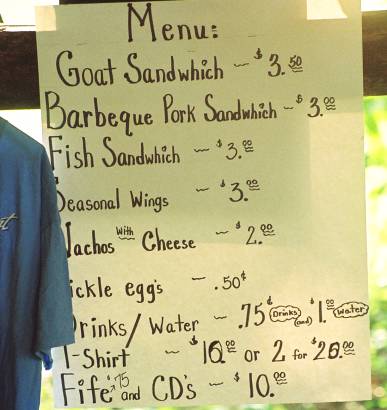 Menu:
Goat Sandwhich ~ $3.50
Barbeque Pork Sandwhich ~ $3.00
Fish Sandwhich ~ $3.00
Seasonal Wings ~ $3.00
Nachos With Cheese ~ $2.00
ickle egg's ~ .50¢
Drinks/Water ~ .75¢ Drinks (and) $1.00 Water
T-Shirt ~ $16.00 or 2 for $26.00
Fife $15 and CD's ~ $10.00